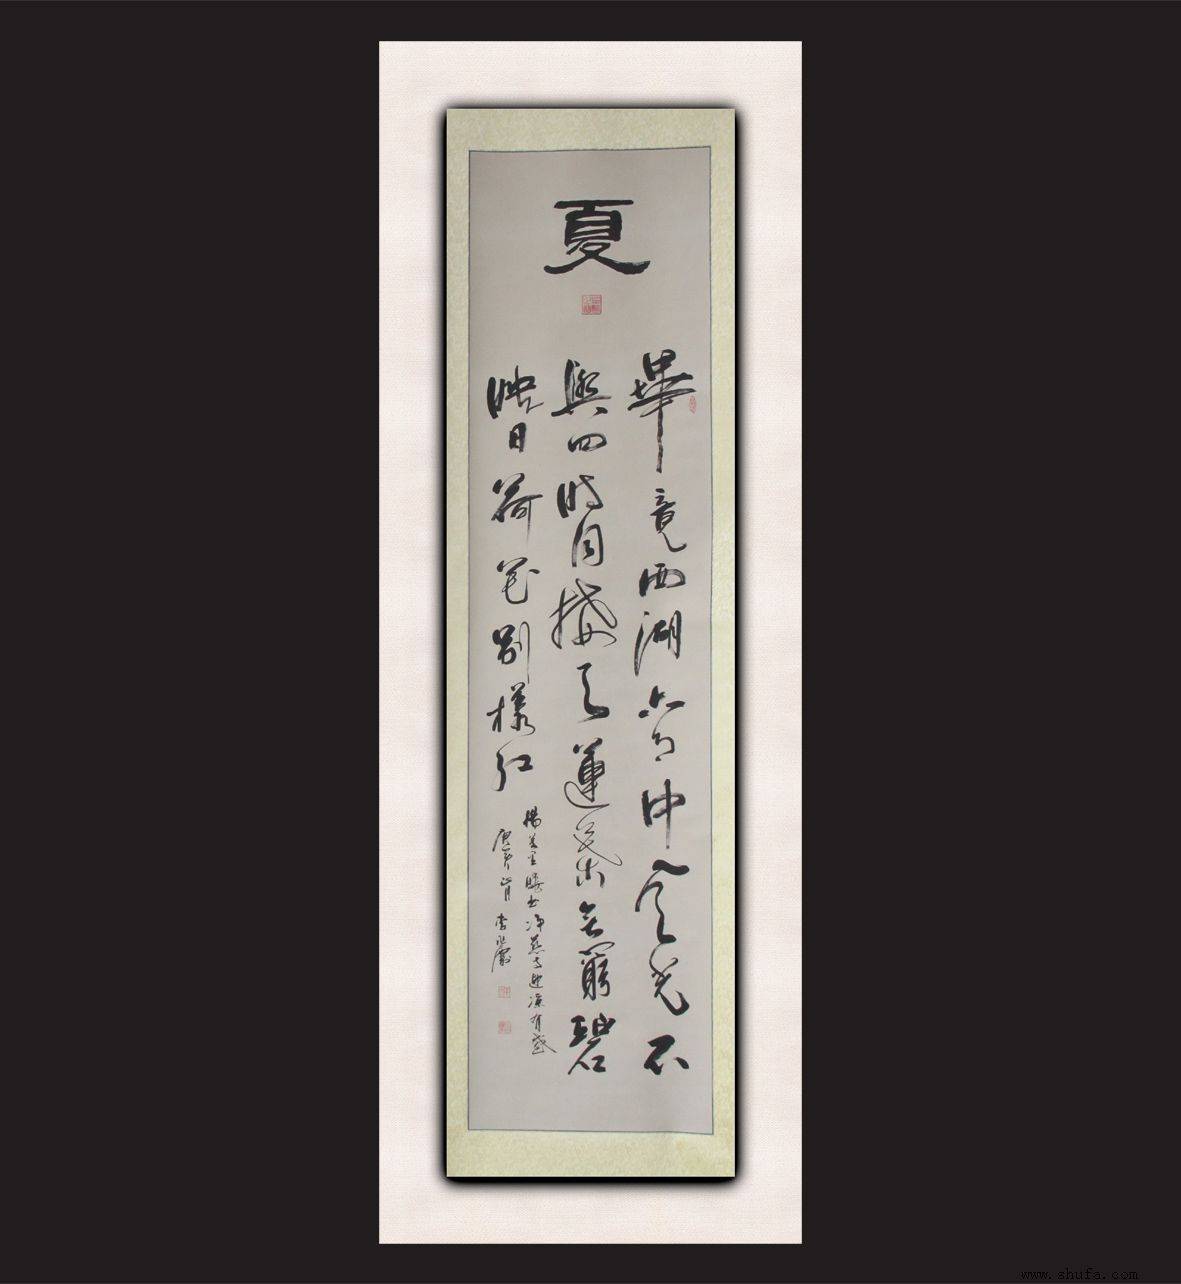 夏
畢竟西湖六月中風光不
與四時同接天蓮葉無窮碧
映日荷花別樣紅
楊萬里曉出淨慈寺迎涼有感
庚寅 李
www.shufa.com